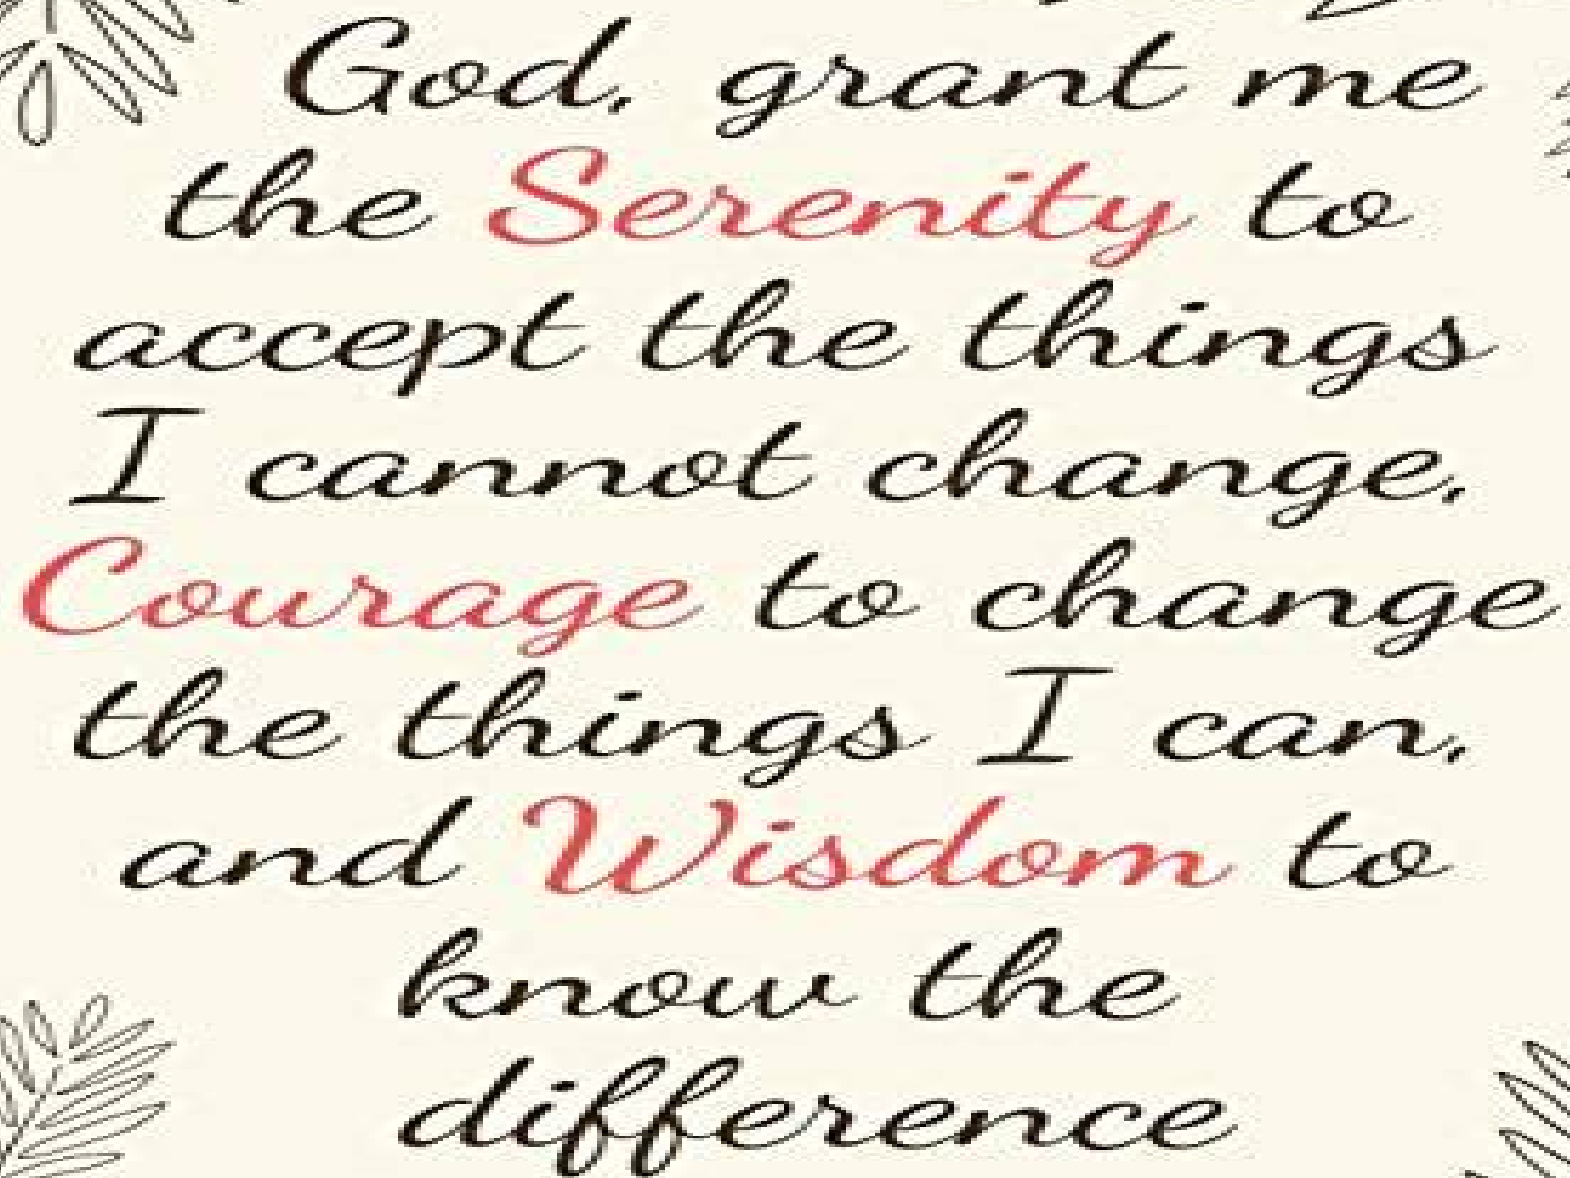 God, grant me
the Serenity to
accept the things
I cannot change,
Courage to change
the things I can,
and Wisdom to
know the
difference